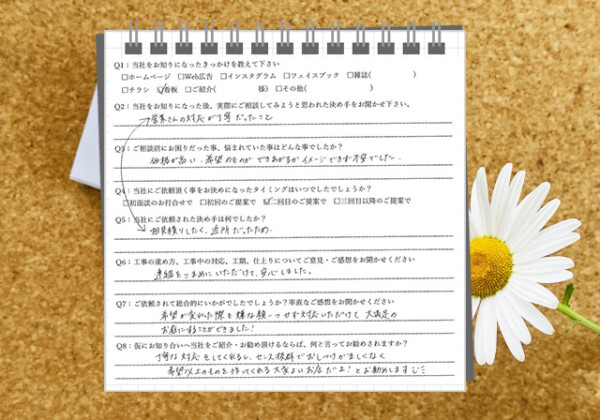 Q1：当社をお知りになったきっかけを教えて下さい
□ホームページ □Web広告 □インスタグラム □フェイスブック □雑誌( )
□チラシ ☑看板 □ご紹介( 様) □その他( )
Q2：当社をお知りになった後、実際にご相談してみようと思われた決め手をお聞かせ下さい。
営業さんの対応が丁寧だったこと
Q3：ご相談前にお困りだった事、悩まれていた事はどんな事でしたか？
価格が高い、希望のものができあがるかイメージできず不安でした。
Q4：当社にご依頼頂く事をお決めになったタイミングはいつでしたでしょうか？
□初面談のお打合せで □初回のご提案で ☑二回目のご提案で □三回目以降のご提案で
Q5：当社にご依頼された決め手は何でしたか？
相見積りしたく、近所だったため。
Q6：工事の進め方、工事中の対応、工期、仕上りについてご意見・ご感想をお聞かせください
連絡をこまめにいただけて、安心しました。
Q7：ご依頼されて総合的にいかがでしたでしょうか？率直なご感想をお聞かせください
希望が変わった際も嫌な顔一つせず対応いただけて 大満足の
お庭に ことができました！
Q8：仮にお知り合いへ当社をご紹介・お勧め頂けるならば、何と言ってお勧めされますか？
丁寧な対応をしてくれるし、センス抜群でおしつけがましくなく
希望以上のものを作ってくれる 大変よいお店だよ！とお勧めします